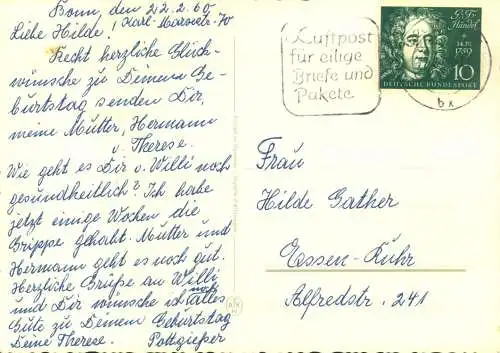 Bonn, den 22.2.60
Karl-Marxstr. 70
Liebe Hilde!
Recht herzliche Glück-
wünsche zu Deinem Ge-
burtstag senden Dir,
meine Mutter, Hermann
u. Therese.
Wie geht es Dir u. Willi noch
gesundheitlich? Ich habe
jetzt einige Wochen die
Grippe gehabt. Mutter und
Hermann geht es noch gut.
Herzliche Grüße an Willi
und Dir wünsche ich alles
Gute zu Deinem Geburtstag
Deine Therese. Pottgießer
Luftpost
für eilige
Briefe und
Pakete
G.F.
Händel
14.IV.
1759
10
DEUTSCHE BUNDESPOST
bx
Frau
Hilde Gather
Essen-Ruhr
Alfredstr. 241